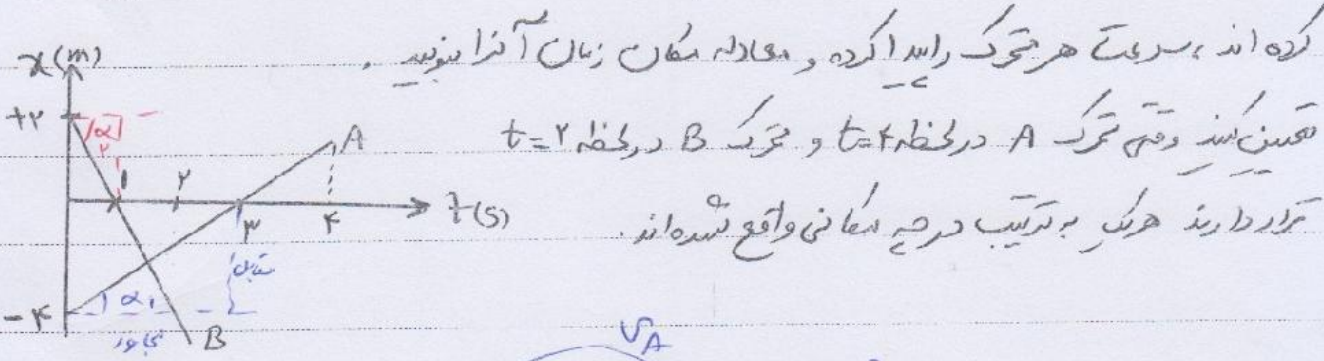 کرده اند، سرعت هر متحرک را پیدا کرده و معادله مکان زمان آنرا بنویسید.
تعیین کنید وقتی متحرک A در لحظه t=۴ و متحرک B در لحظه t=۲
قرار دارند هریک به ترتیب در چه مکانی واقع شده‌اند.
x(m)
+۲
α۲
۱
۲
۳
۴
A
t(s)
مقابل
-۴
α۱
مجاور
B
VA